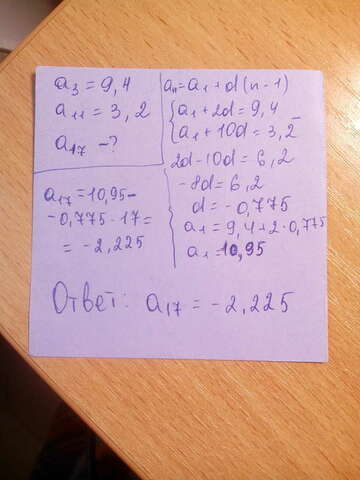 a₃ = 9,4
a₁₁ = 3,2
a₁₇ - ?
aₙ = a₁ + d(n - 1)
{ a₁ + 2d = 9,4
{ a₁ + 10d = 3,2
2d - 10d = 6,2
-8d = 6,2
d = -0,775
a₁ = 9,4 + 2·0,775
a₁ = 10,95
a₁₇ = 10,95 -
- 0,775·17 =
= -2,225
Ответ: a₁₇ = -2,225